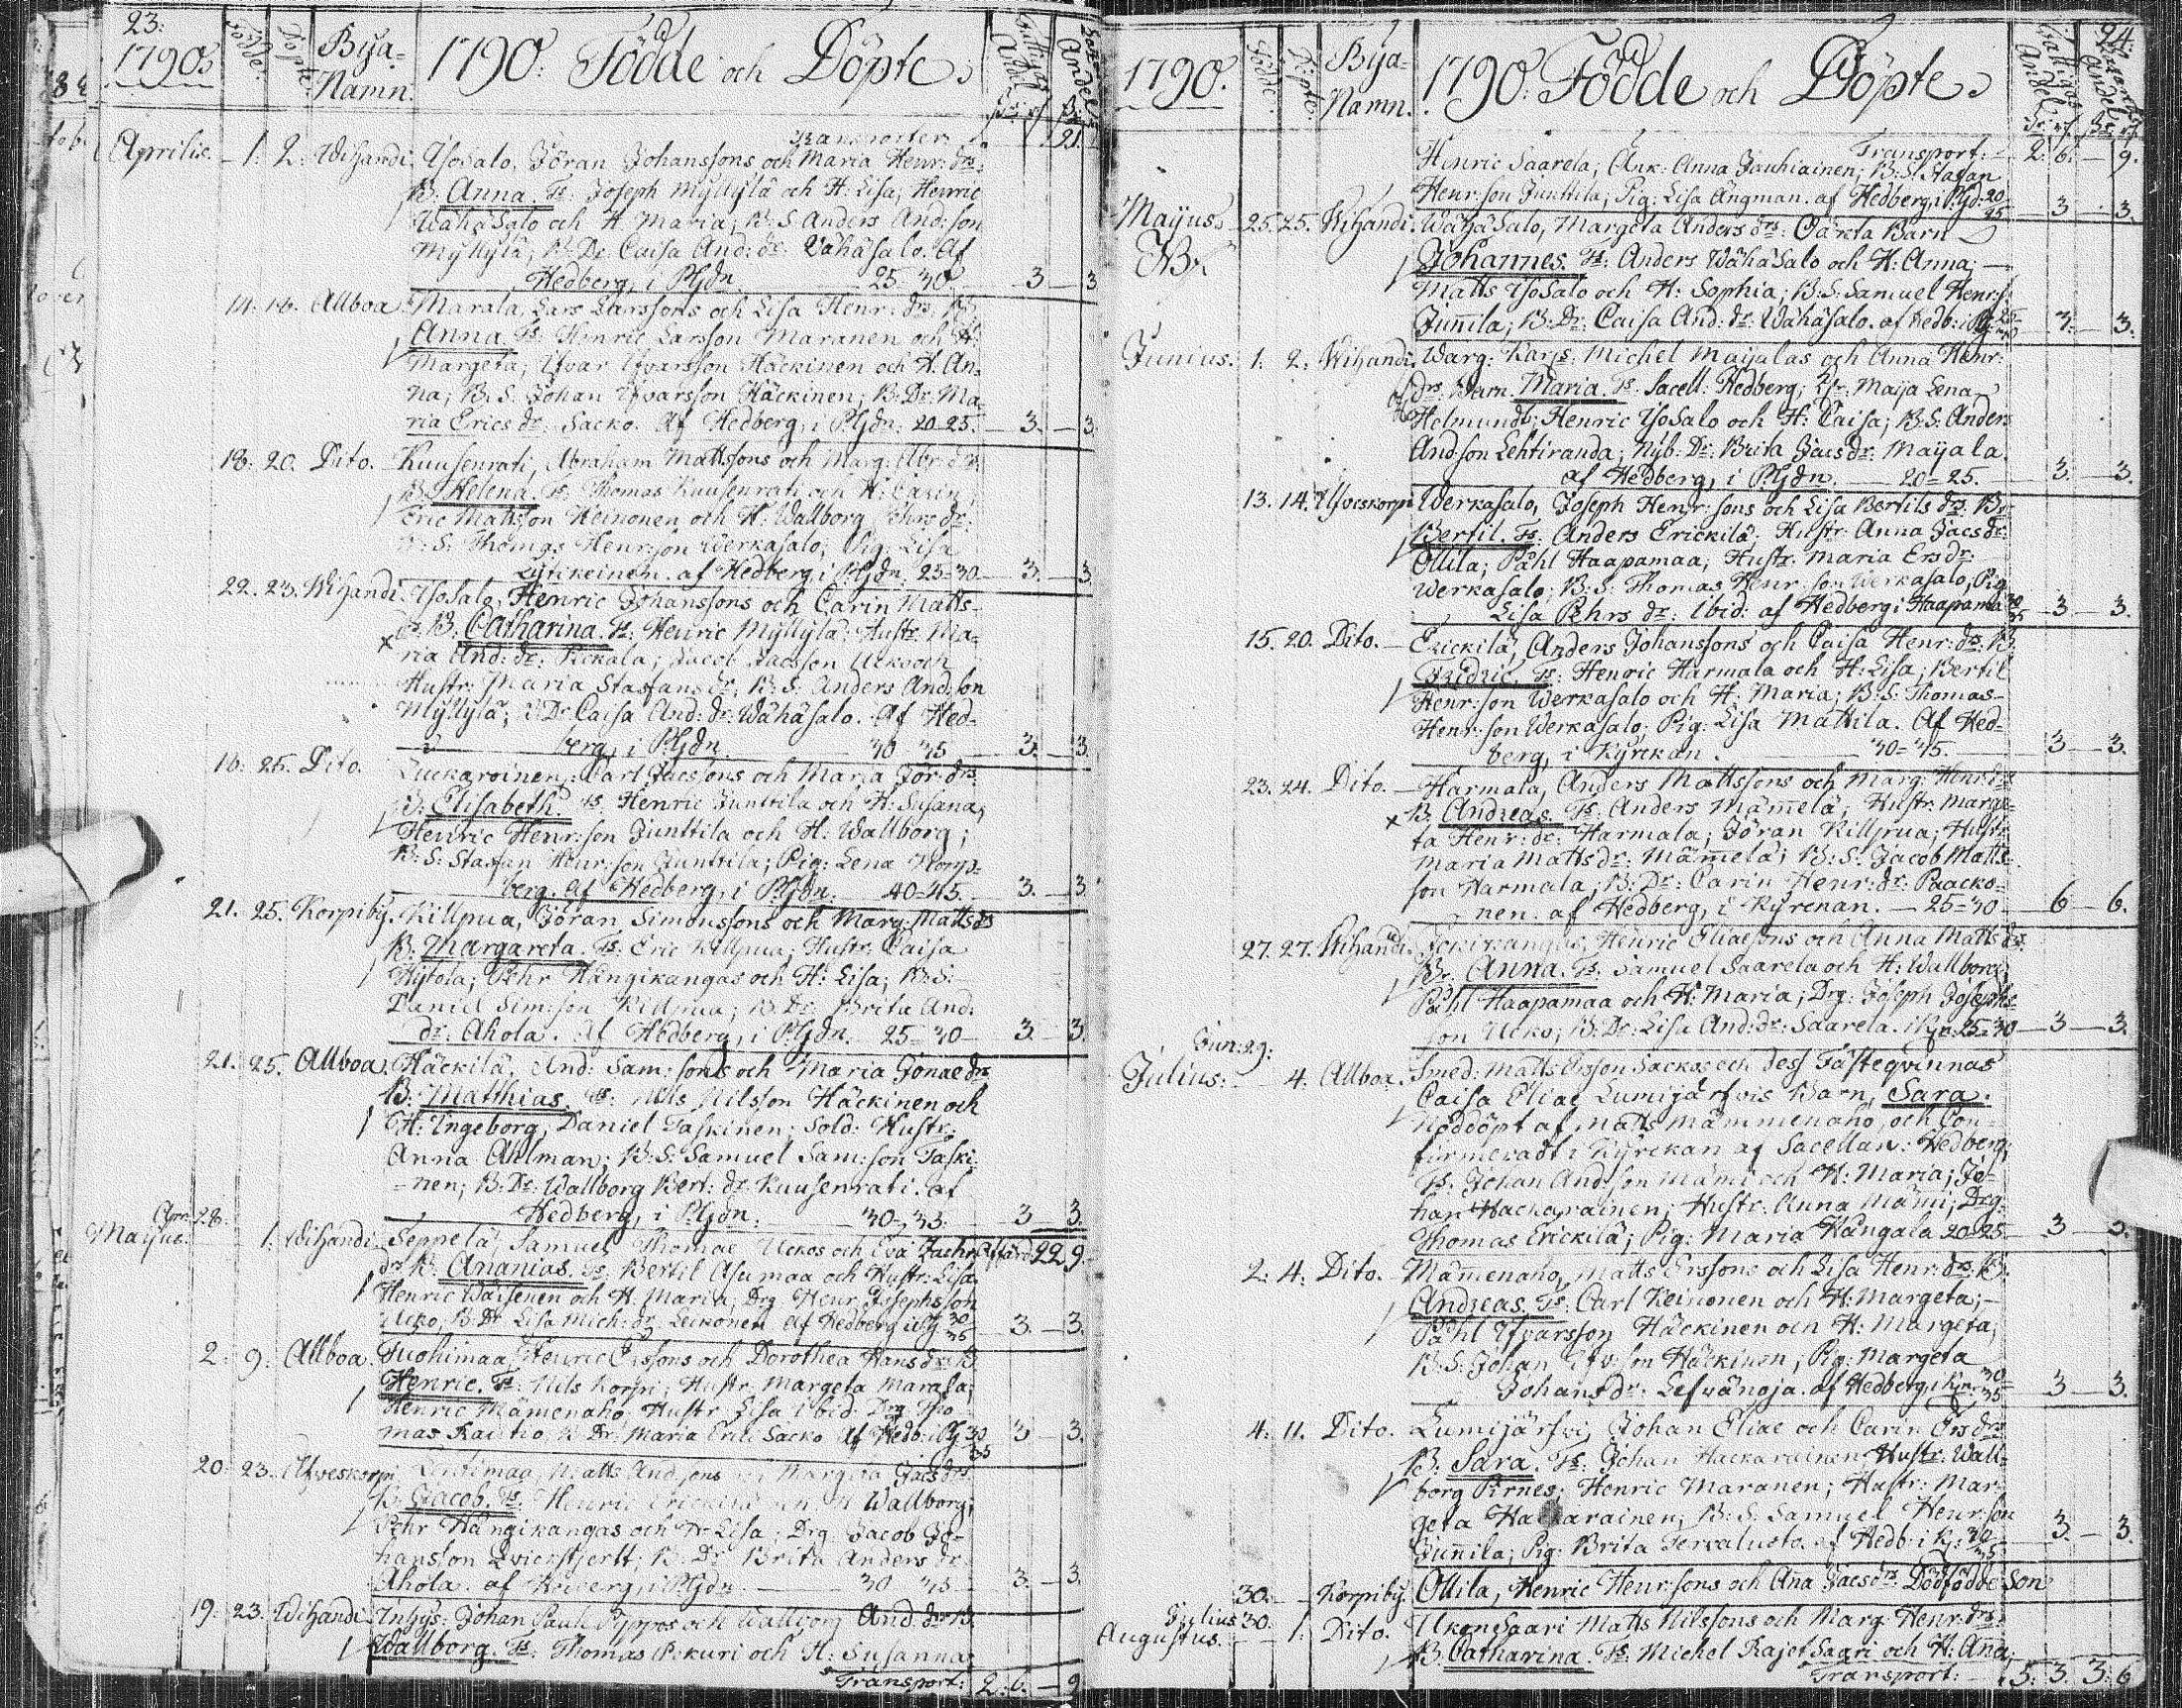 23:
1790:
Födde:
Döpte:
Bya-
Namn.
1790: Födde och Döpte:
Transporter: 21.
Aprilis. 1: 2: Wihandi. YsoSalo, Jöran Johanssons och Maria Henr: drs:
B: Anna. Ts: Joseph Myllylä och H: Lisa; Henric
WähäSalo och H: Maria; B: S: Anders And:son
Myllylä; B: Dr: Caisa And: dr: Wähäsalo. Af
Hedberg, i P:gdn. 25 30. 3 3
14: 18. Allboa. Marala, Lars Larssons och Lisa Henr: drs: B:
Anna. Ts: Henric Larsson Maranen och H:
Margeta; Yfvar Yfvarsson Häckinen och H: An-
na; B: S. Johan Yfvarsson Häckinen; B: Dr: Ma-
ria Erics dr: Sacko. Af Hedberg, i P:gdn: 20-25. 3. 3.
18: 20. Dito. Kuusenrati, Abraham Mattssons och Marg: Abr: drs
B: Helena. Ts: Thomas Kuusenrati och H: Carin;
Eric Mattsson Keinonen och H: Wallborg Pehrs dr:
B: S: Thomas Henr:son Werkasalo; Pig: Lisa
Lytikeinen. af Hedberg, i P:gdn. 25=30 3. 3
22. 23. Wihandi. YsoSalo, Henric Johanssons och Carin Matts-
d: B: Catharina. Ts: Henric Myllylä: Hustr: Ma-
ria And: dr: Pickala; Jacob Jacsson Ucko och
Hustr: Maria Staffans dr. B: S: Anders And:son
Myllylä; Dr: Caisa And: dr: Wähäsalo. Af Hed-
berg, i P:gdn 30 35 3. 3
16: 25. Dito. Luckaroinen, Carl Jacssons och Maria Jör: drs:
B: Elisabeth. Ts: Henric Junttila och H: Susana;
Henric Henr:son Junttila och H: Wallborg;
B: S: Staffan Henr:son Junttila; Pig: Lena Norp-
berg. af Hedberg, i P:gdn. 40=45. 3. 3
21. 25. Korpiby. Killpua, Jöran Simonssons och Marg: Matts drs
B: Margareta. Ts: Eric Killpua; Hustr: Caisa
Hytola; Pehr Hängikangas och H: Lisa; B: S:
Daniel Sim:son Killpua; B: Dr: Brita And:
dr: Ahola. Af Hedberg, i P:gdn. 25=30 3. 3
21. 25. Allboa. Häckilä, And: Sam:sons och Maria Jonae drs
B: Matthias. Ts: Nils Nilsson Häckinen och
H: Ingeborg; Daniel Taskinen; Sold: Hustr:
Anna Ahlman; B: S: Samuel Sam:son Taski-
nen; B: Dr: Wallborg Bert: dr: Kuusenrati. af
Hedberg, i P:gdn. 30, 35. 3 3.
Apr: 28.
Maijus. 1. Wihandi. Seppelä, Samuel Thomae Uckos och Eva Zachr: 22 9.
dr: B: Ananias. Ts: Bertil Asumaa och Hustr: Lisa
Henric Wäisenen och H: Maria; Drg Henr: Josephsson
Ucko, B: Dr Lisa Mich: dr: Leikonen af Hedberg i Pg 30/35 3. 3.
2: 9: Allboa. Tuohimaa, Henric Erssons och Dorothea Hans drs: B:
Henric. Ts: Nils Korpi; Hustr: Margeta Marala;
Henric Mämenaho, Hustr Lisa ibid: Drg Tho-
mas Rautio, B: Dr: Maria Erici Sacko Af Hedb: i Pg 30/35 3 3.
20: 23. Ylfveskorpi. Lehtimaa, Matts And:sons och Margeta Jacs drs
B: Jacob. Ts: Henric Erickilä och H: Wallborg;
Pehr Hängikangas och H: Lisa; Drg: Jacob Jo-
hansson Qvierstjertt; B: Dr: Brita Anders dr:
Ahola. af Hedberg, i P:gdn. 30 35 3. 3.
19: 23. Wihandi. Inhys: Johan Pauli Pyppos och Wallborg And: drs: B:
Wallborg. Ts: Thomas Pekuri och H: Susanna;
Transport: 2: 6. 9
24.
1790.
Födde:
Döpte:
Bya-
Namn.
1790: Födde och Döpte:
Transport: 2: 6. 9.
Henric Saarela; Ank: Anna Jauhiainen; B: S: Staffan
Henr:son Junttila; Pig: Lisa Ängman. af Hedberg, i P:gd: 20/25 3 3.
Maijus. 25. 25. Wihandi. WähäSalo, Margeta Anders drs: Oäckta Barn
Johannes. Ts: Anders WähäSalo och H: Anna;
Matts YsoSalo och H: Sophia; B: S: Samuel Henr:s:
Juñila; B: Dr: Caisa And: dr: Wähäsalo. af Hedb: i Pg: 3. 3.
Junius: 1: 2: Wihandi. Warg: Karjs: Michel Maijalas och Anna Henr:
drs: Barn. Maria. Ts: Sacell: Hedberg; Maija Lena
Helmund; Henric YsoSalo och H: Caisa; B: S: Anders
And:son Lehtiranda; Nyb: Dr: Brita Jacs dr: Maijala.
af Hedberg, i P:gdn. 20=25. 3. 3.
13. 14. Ylfveskorpi Werkasalo, Joseph Henr:sons och Lisa Bertils drs: B:
Bertil. Ts: Anders Erickilä; Hustr: Anna Jacs dr:
Ollila; Påhl Haapamaa; Hustr: Maria Ers dr:
Werkasalo; B: S: Thomas Henr:son Werkasalo, Pig
Lisa Pehrs dr: ibid: af Hedberg i Haapama 3 3.
15. 20. Dito. Erickilä, Anders Johanssons och Caisa Henr: drs: B:
Fredric. Ts: Henric Harmala och H: Lisa; Bertil
Henr:son Werkasalo och H: Maria; B: S: Thomas
Henr:son Werkasalo; Pig: Lisa Mattila. Af Hed-
berg, i Kyrckan. 30=35. 3 3.
23. 24. Dito. Harmala, Anders Mattssons och Marg: Henr: drs
B: Andreas. Ts: Anders Mam̃elä; Hustr: Marge-
ta Henr: dr: Harmala; Jöran Killpua; Hustr:
Maria Matts dr: Mam̃elä; B: S: Jacob Matts-
son Harmala; B: Dr: Carin Henr: dr: Paacko-
nen. af Hedberg, i Kyrckan. 25=30 6 6.
27. 27. Wihandi. Henric Eliaesons och Anna Matts drs:
B: Anna. Ts: Samuel Saarela och H: Wallborg;
Påhl Haapamaa och H: Maria; Drg: Joseph Josephs-
son Ucko; B: Dr: Lisa And: dr: Saarela. i Kyr: 25=30 3 3.
Jun: 29:
Julius: 4. Allboa. Smed: Matts Ersson Sackos och dess Fästeqvinnas
Caisa Eliae Lumijärfvis Barn, Sara.
Nöddöpt af Matts Mämmenaho, och Con-
firmeradt i Kyrckan af Sacellan: Hedberg;
Ts: Johan And:son Mämi och H: Maria; Jo-
han Hackarainen; Hustr: Anna Mämi; Drg:
Thomas Erickilä; Pig: Maria Hängala 20=25. 3 3.
2: 4: Dito. Mam̃enaho, Matts Erssons och Lisa Henr: drs: B:
Andreas. Ts: Carl Keinonen och H: Margeta;
Påhl Yfvarsson Häckinen och H: Margeta;
B: S: Johan Yfv:son Häckinen; Pig: Margeta
Johans dr: Lefvänoja. af Hedberg, i Kyr: 30/35 3 3.
4: 11. Dito. Lumijärfvi, Johan Eliae och Carin Ers drs
B: Sara. Ts: Johan Hackarainen; Hustr: Wall-
borg Pirnes; Henric Maranen; Hustr: Mar-
geta Hackarainen; B: S: Samuel Henr:son
Juñila; Pig: Brita Tervalusto. af Hedb: i K: 30/35 3. 3.
30. Korpiby. Ollila, Henric Henr:sons och Aña Jacs drs: Dödfödde Son
Julius 30:
Augustus. 1. Dito. UkonSaari Matts Nilssons och Marg: Henr: drs:
B: Catharina. Ts: Michel RajetSaari och H: Aña;
Transport: 5: 3. 3: 6